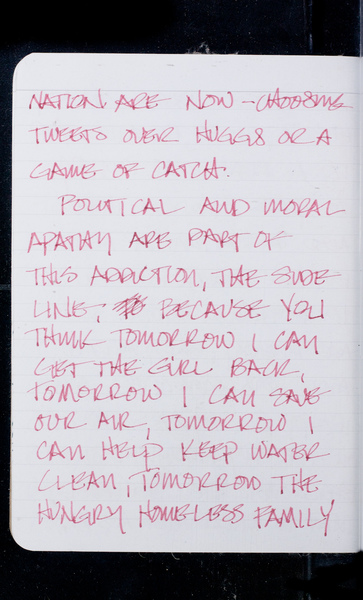 NATION ARE NOW - CHOOSING
TWEETS OVER HUGGS OR A
GAME OF CATCH.
POLITICAL AND MORAL
APATHY ARE PART OF
THIS ADDICTION, THE SIDE
LINE, BECAUSE YOU
THINK TOMORROW I CAN
GET THE GIRL BACK,
TOMORROW I CAN SAVE
OUR AIR, TOMORROW I
CAN HELP KEEP WATER
CLEAN, TOMORROW THE
HUNGRY HOMELESS FAMILY